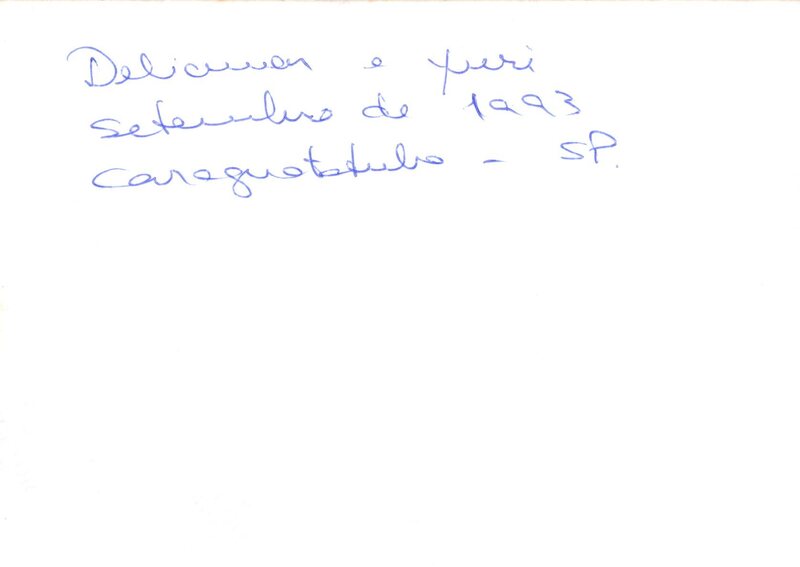 Deliamar e Yuri
Setembro de 1993
Caraguatatuba - SP.